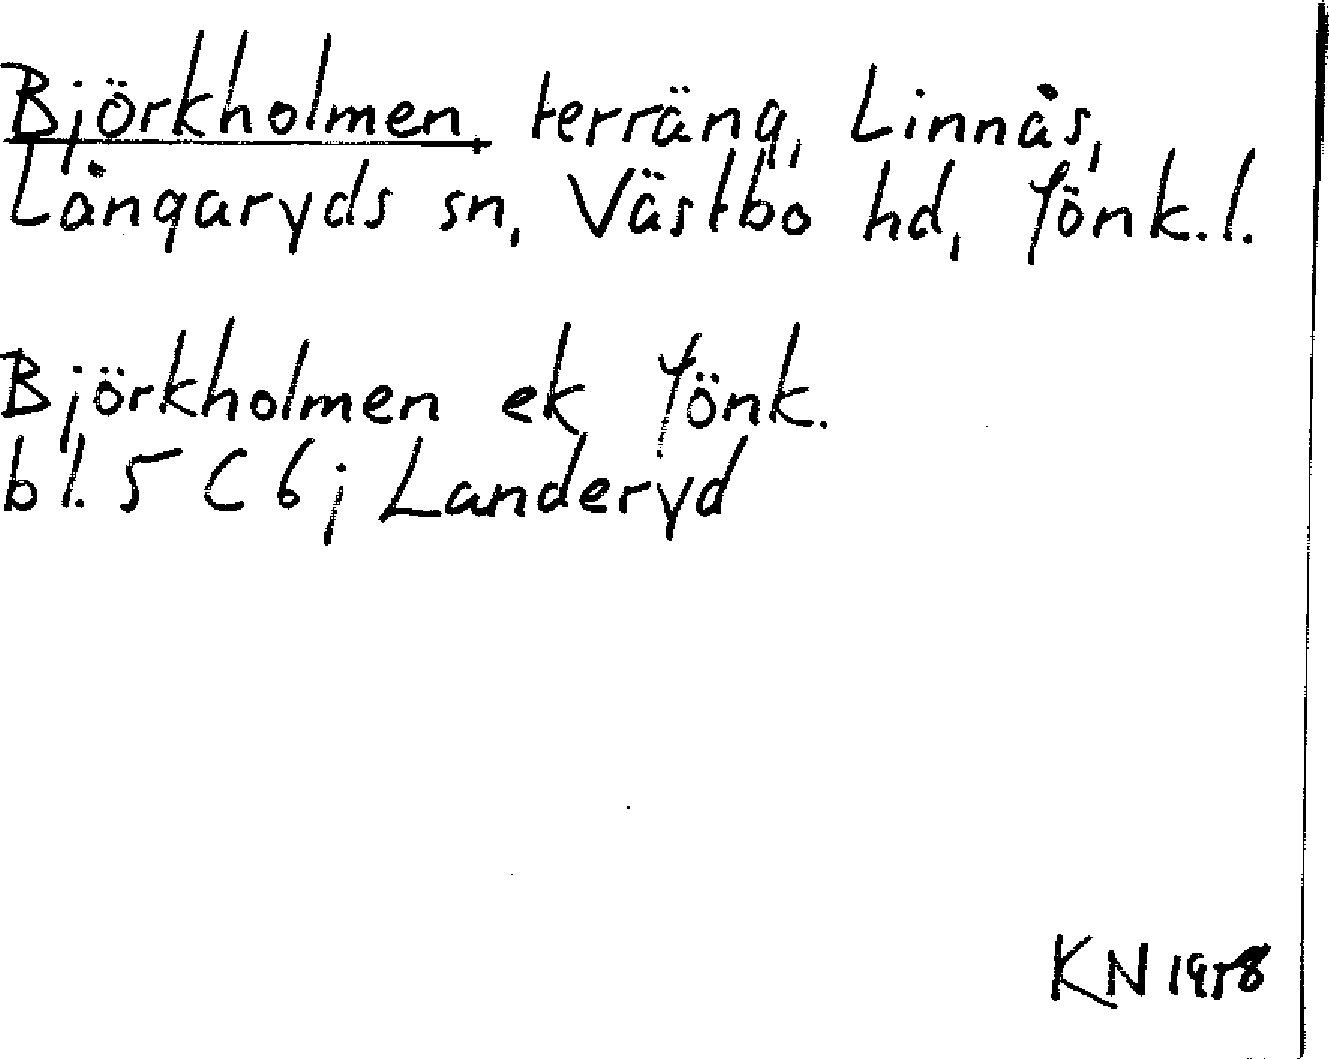 Björkholmen, terräng, Linnås,
Långaryds sn, Västbo hd, Jönk.l.
Björkholmen ek Jönk.
bl. 5 C 6 j Landeryd
KN 1958